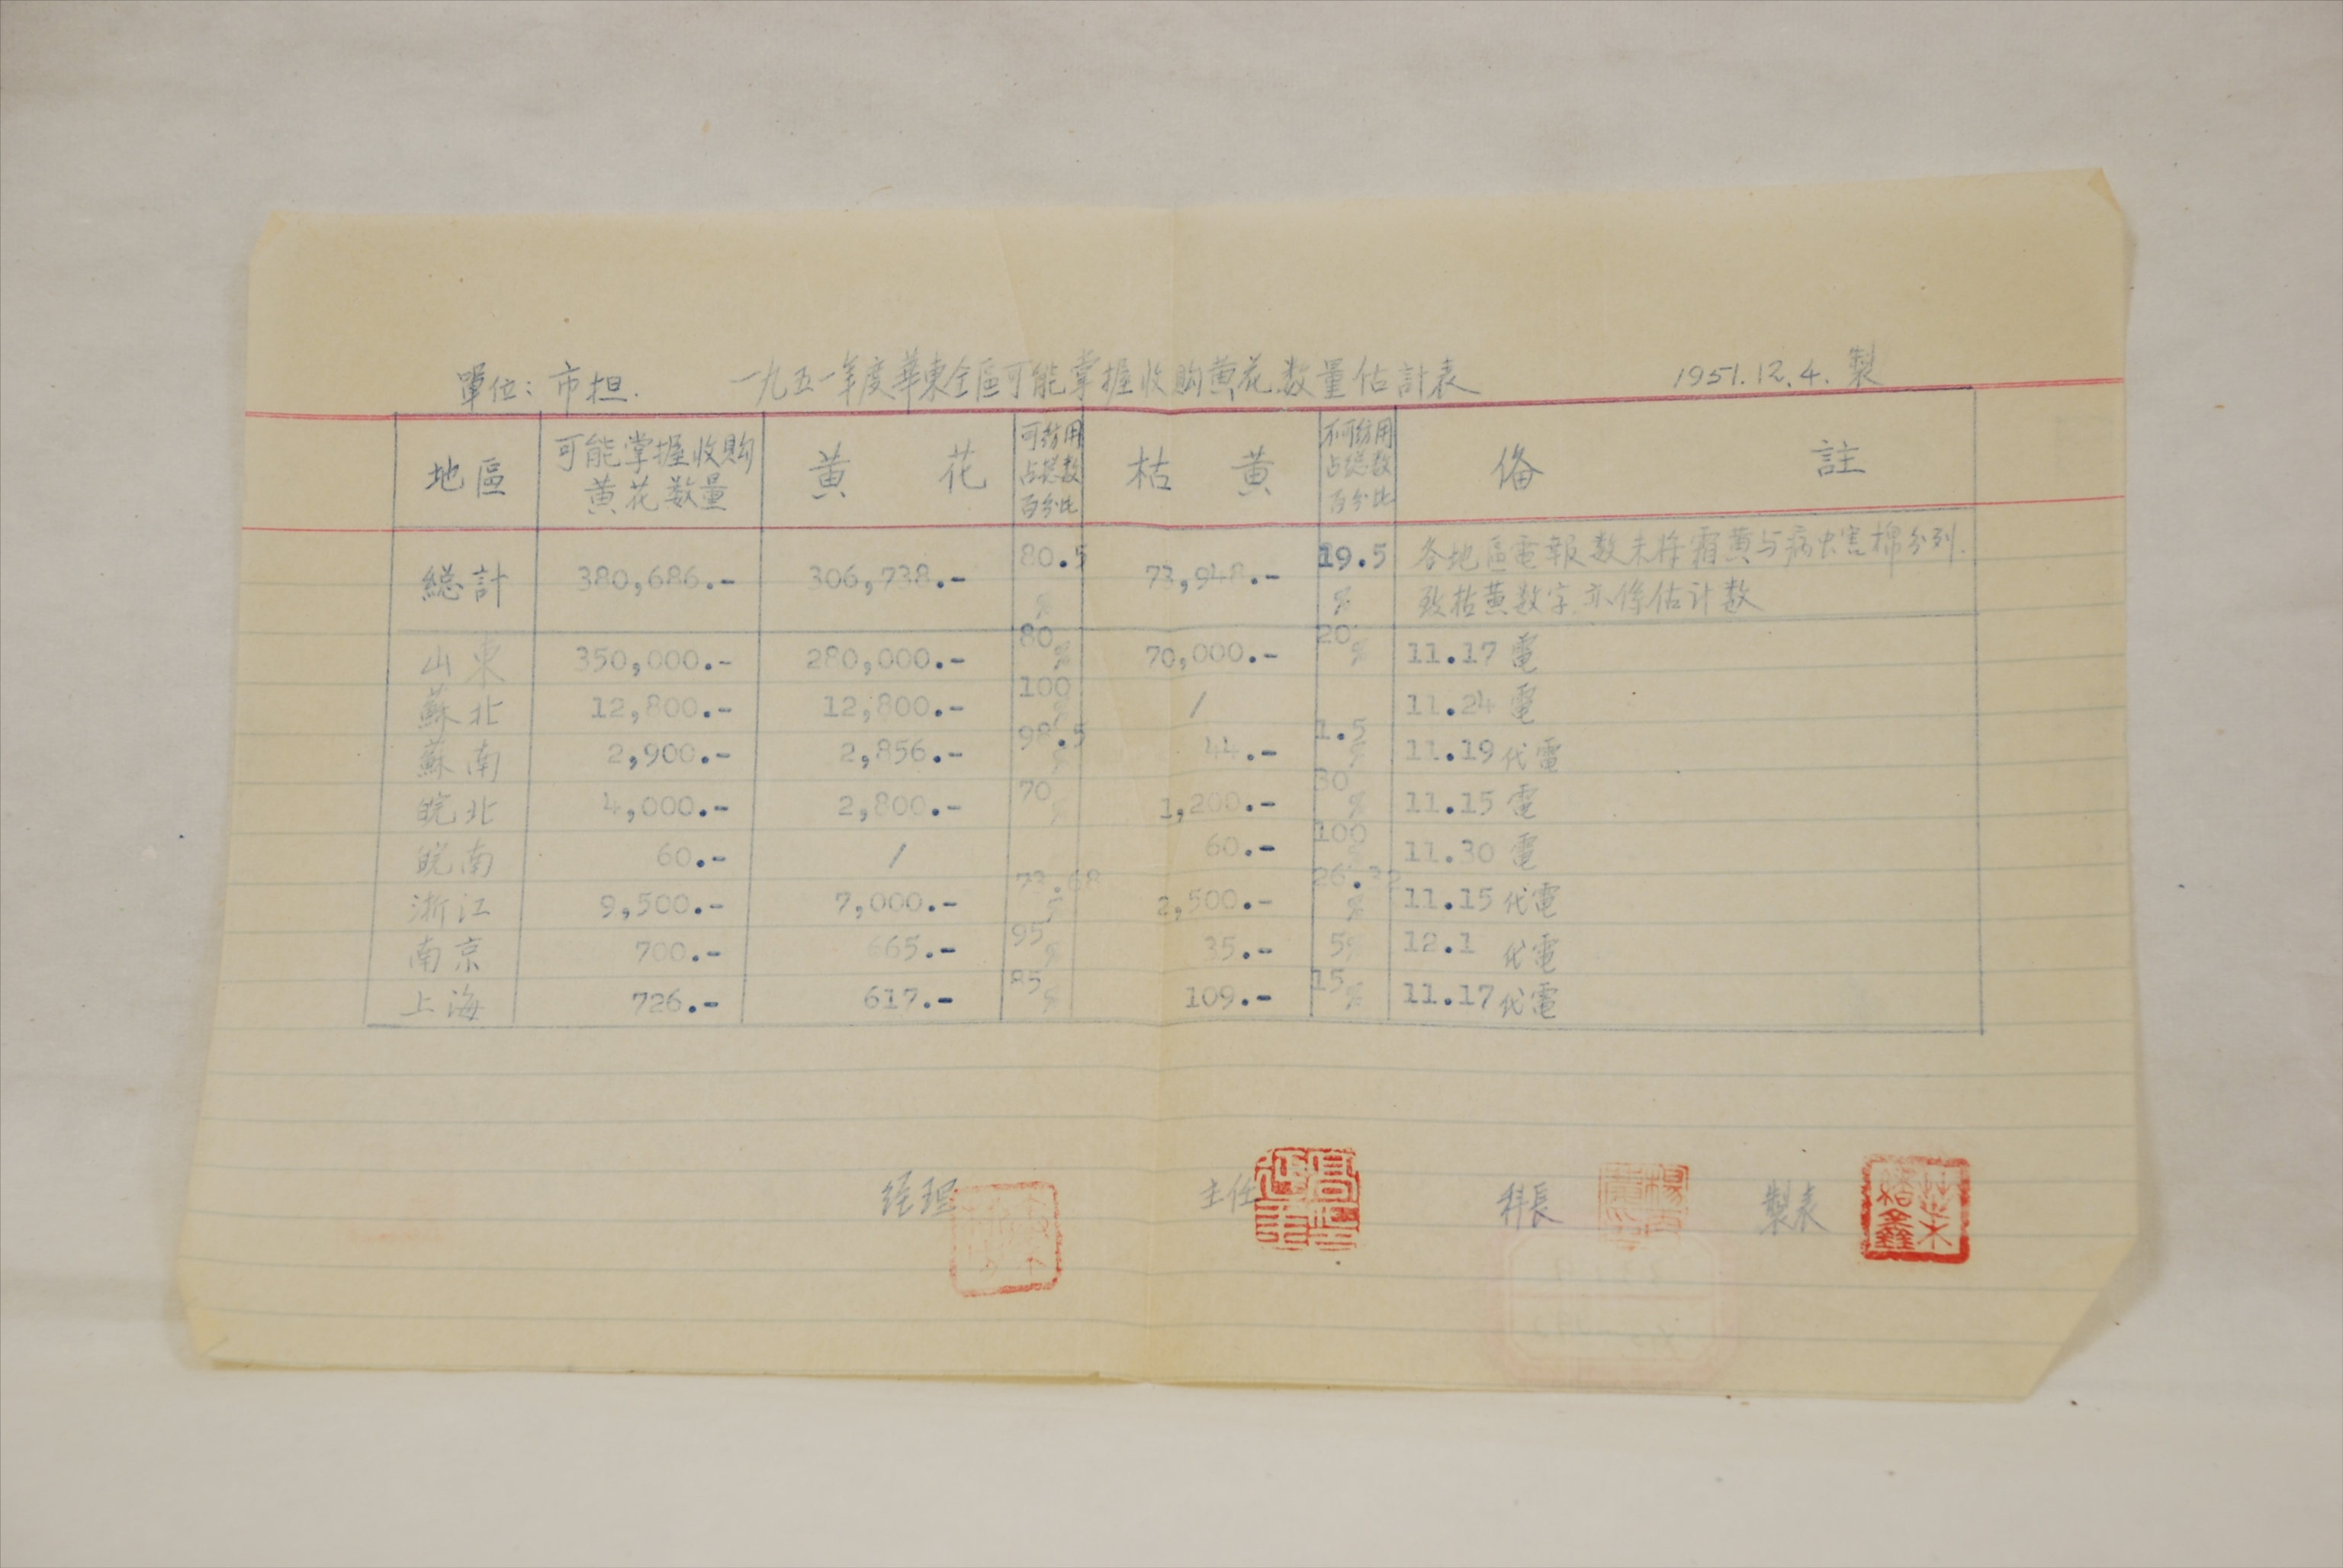 單位：市担.  一九五一年度華東全區可能掌握收购黄花数量估計表  1951.12.4. 製
地區  可能掌握收购黄花数量  黄花  可纺用占总数百分比  枯黄  不可纺用占总数百分比  俻註
總計  380,686.-  306,738.-  80.5%  73,948.-  19.5%  各地區電報数未将霜黄与病虫害棉分列.
致枯黄数字亦係估计数
山東  350,000.-  280,000.-  80%  70,000.-  20%  11.17 電
蘇北  12,800.-  12,800.-  100%  /  11.24 電
蘇南  2,900.-  2,856.-  98.5%  44.-  1.5%  11.19 代電
皖北  4,000.-  2,800.-  70%  1,200.-  30%  11.15 電
皖南  60.-  /  60.-  100  11.30 電
浙江  9,500.-  7,000.-  73.68%  2,500.-  26.32%  11.15 代電
南京  700.-  665.-  95%  35.-  5%  12.1 代電
上海  726.-  617.-  85%  109.-  15%  11.17 代電
经理  主任  科長  製表